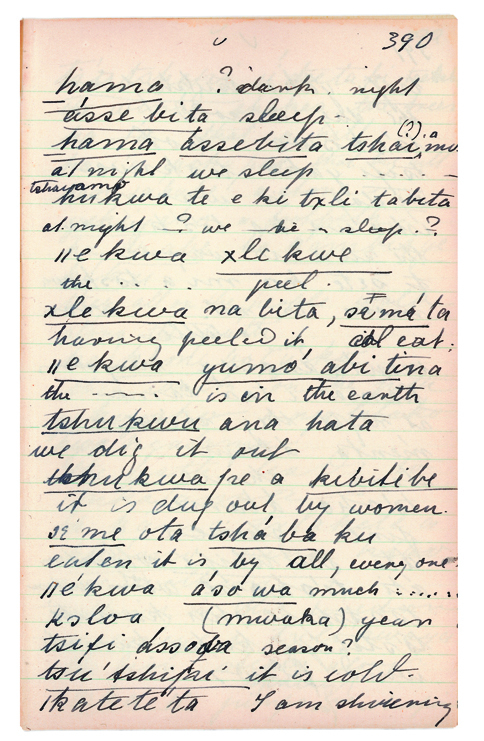 390
hama ? dark. night
ásse bita sleep.
hama ássebita tshai,
(?)
at night we sleep .....
tshayamo
hukwa te e ki txli tabita
at night - ? we - he - sleep. ?
ǁe kwa xle kwe
the .. . . peel.
xle kwa na bita, sẽ má ta
having peeled it eat;
ǁe kwa yumó abi tina
the ---- is in the earth
tshukwu ana hata
we dig it out
kwa pe a kibitibe
it is dug out by women.
me ota tshá ba ku
eaten it is, by all, every one
ǁé kwa áso wa much ......
ksloa (mwaka) year
tsifi season?
tsú it is cold.
ikatetéta I am shivering